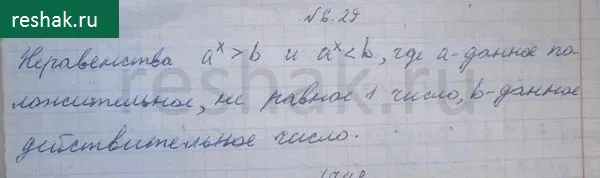 reshak.ru
№6.29
Неравенства aˣ > b и aˣ < b, где a-данное по-
ложительное, не равное 1 число, b-данное
действительное число.
reshak.ru